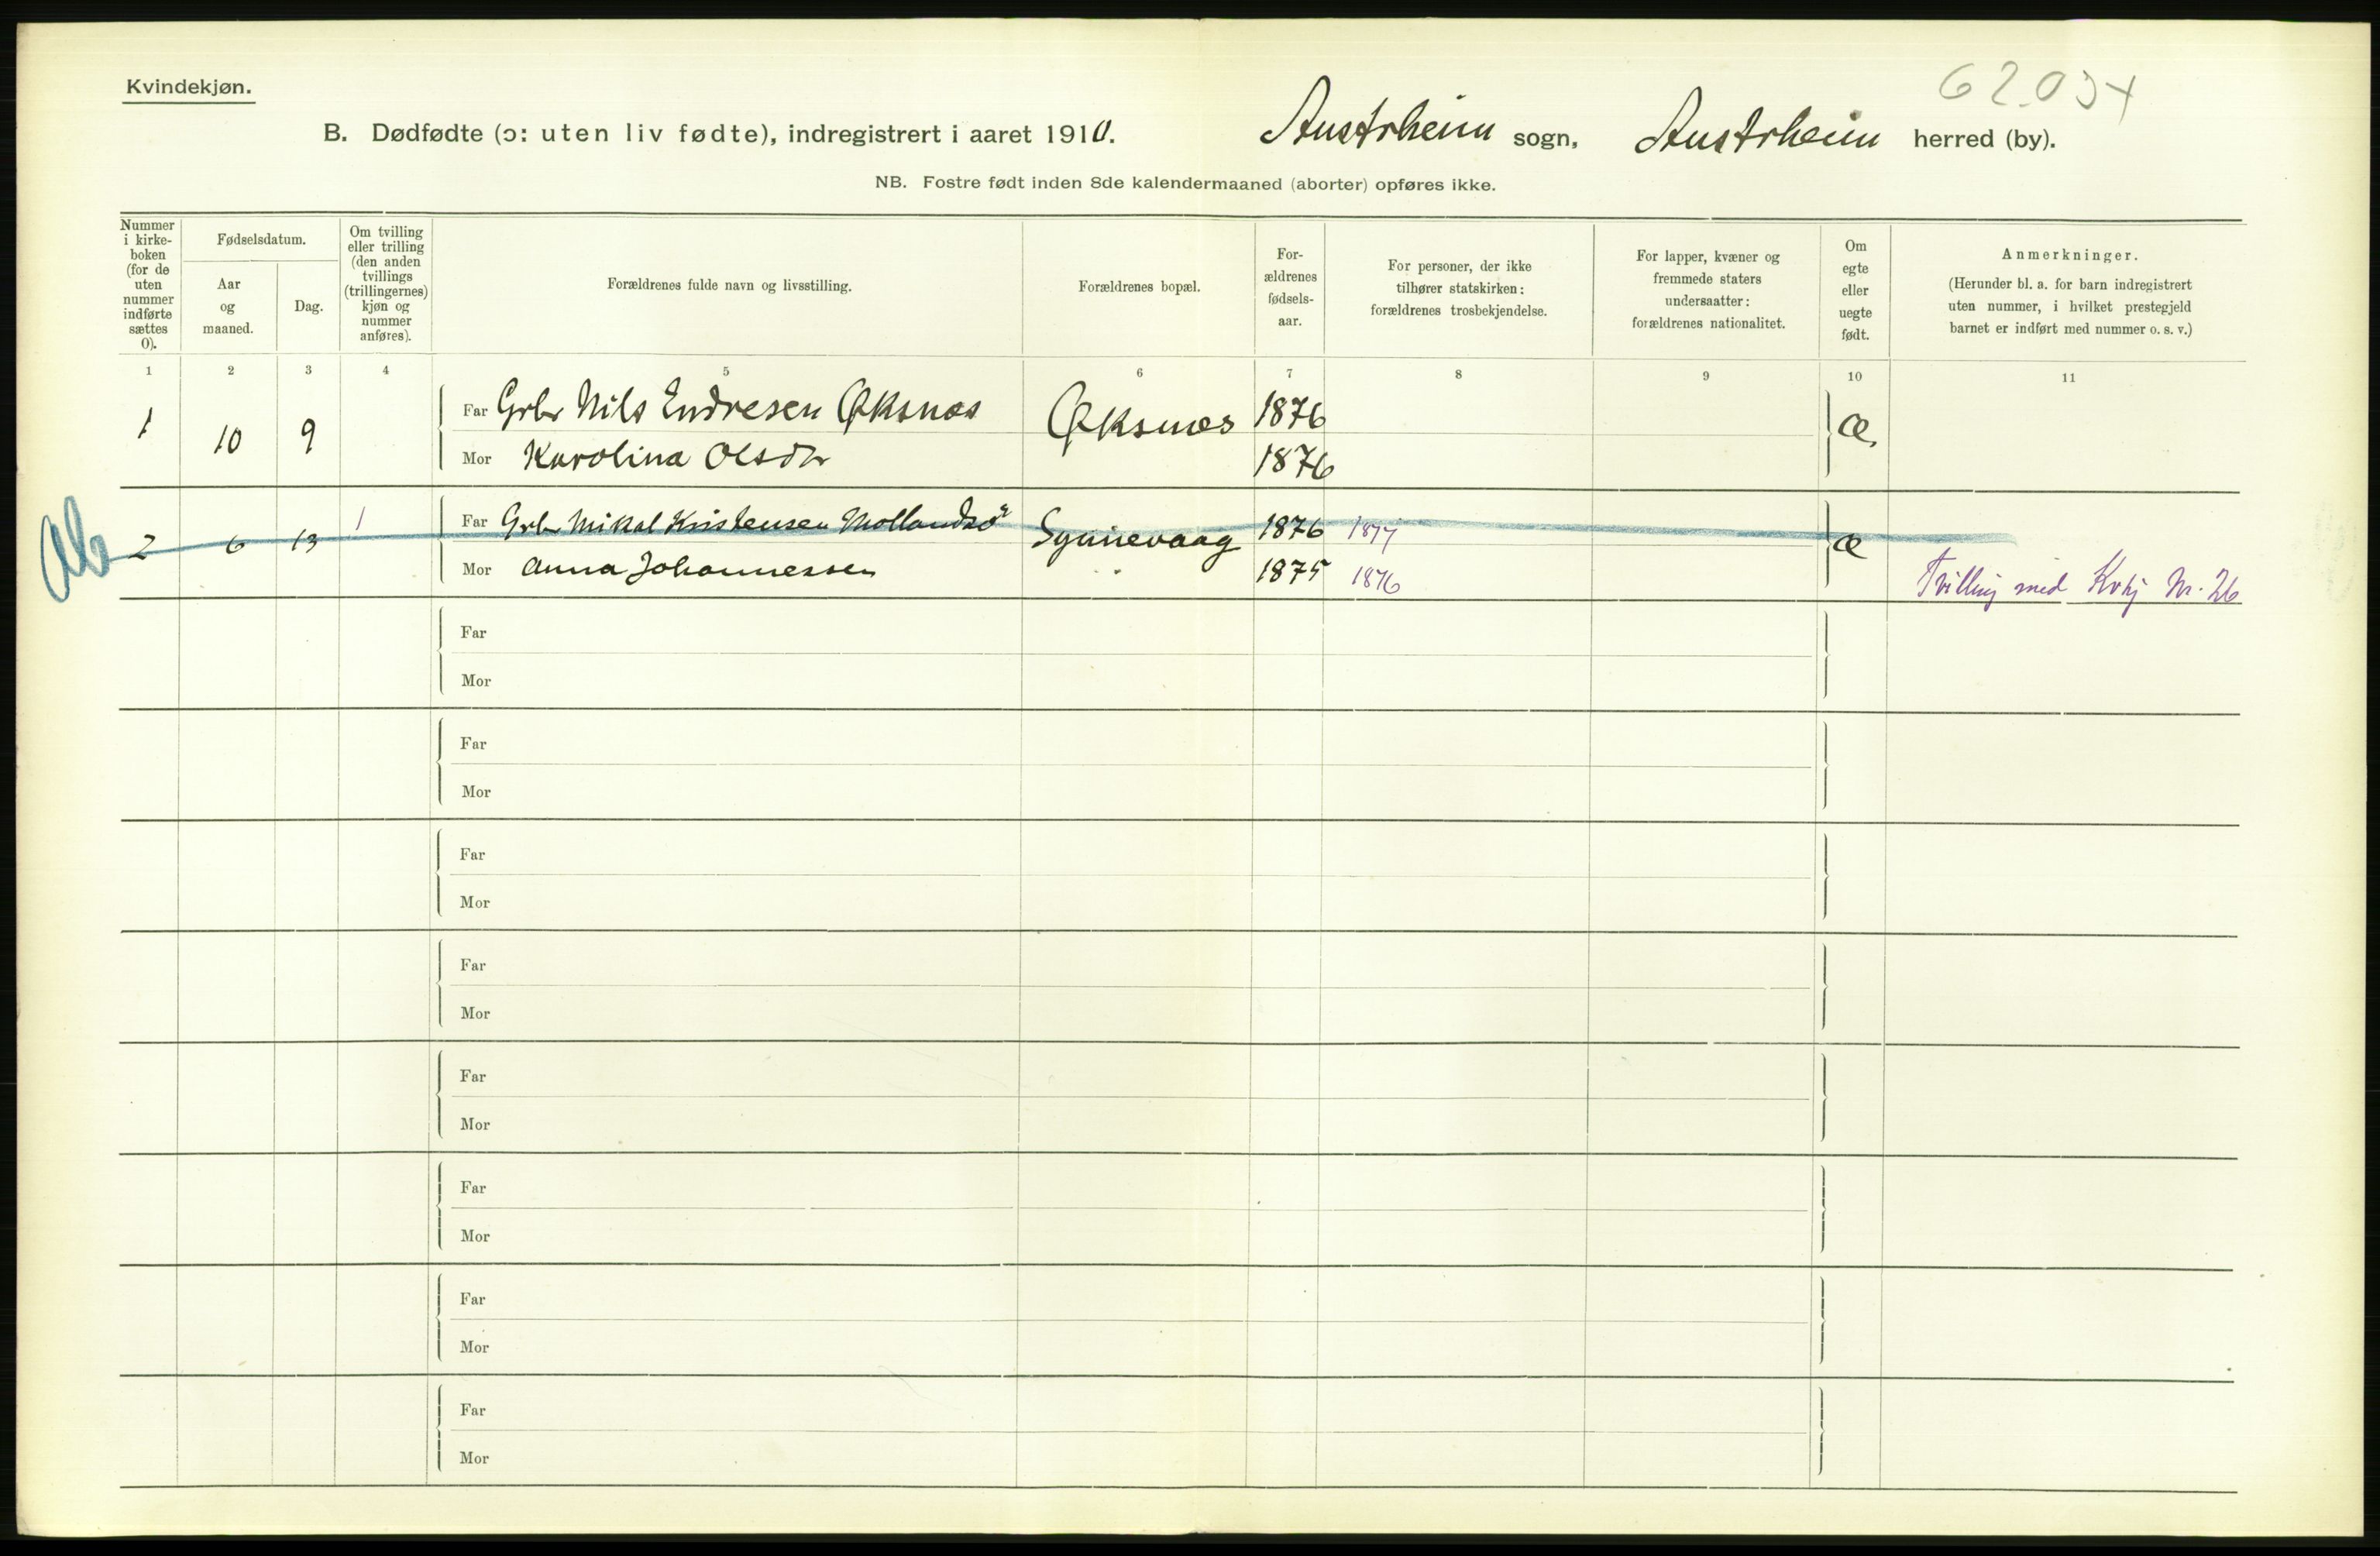 Kvindekjøn.
62.034
B. Dødfødte (ɔ: uten liv fødte), indregistrert i aaret 1910. Austrheim sogn, Austrheim herred (by).
NB. Fostre født inden 8de kalendermaaned (aborter) opføres ikke.
Nummer
i kirke-
boken
(for de
uten
nummer
indførte
sættes
0).
Fødselsdatum.
Aar
og
maaned.
Dag.
Om tvilling
eller trilling
(den anden
tvillings
(trillingernes)
kjøn og
nummer
anføres).
Forældrenes fulde navn og livsstilling.
Forældrenes bopæl.
For-
ældrenes
fødsels-
aar.
For personer, der ikke
tilhører statskirken:
forældrenes trosbekjendelse.
For lapper, kvæner og
fremmede staters
undersaatter:
forældrenes nationalitet.
Om
egte
eller
uegte
født.
Anmerkninger.
(Herunder bl. a. for barn indregistrert
uten nummer, i hvilket prestegjeld
barnet er indført med nummer o. s. v.)
1 2 3 4 5 6 7 8 9 10 11
1 10 9 Far Grbr Nils Endresen Øksnæs Øksnæs 1876 Æ.
Mor Karolina Olsdtr 1876
Ab 2 6 13 1 Far Grbr Mikal Kristensen Mollandsö Synnevaag 1876 1877 Æ
Mor Anna Johannessen 1875 1876 Tvilling med Kvkj Nr. 26
Far
Mor
Far
Mor
Far
Mor
Far
Mor
Far
Mor
Far
Mor
Far
Mor
Far
Mor